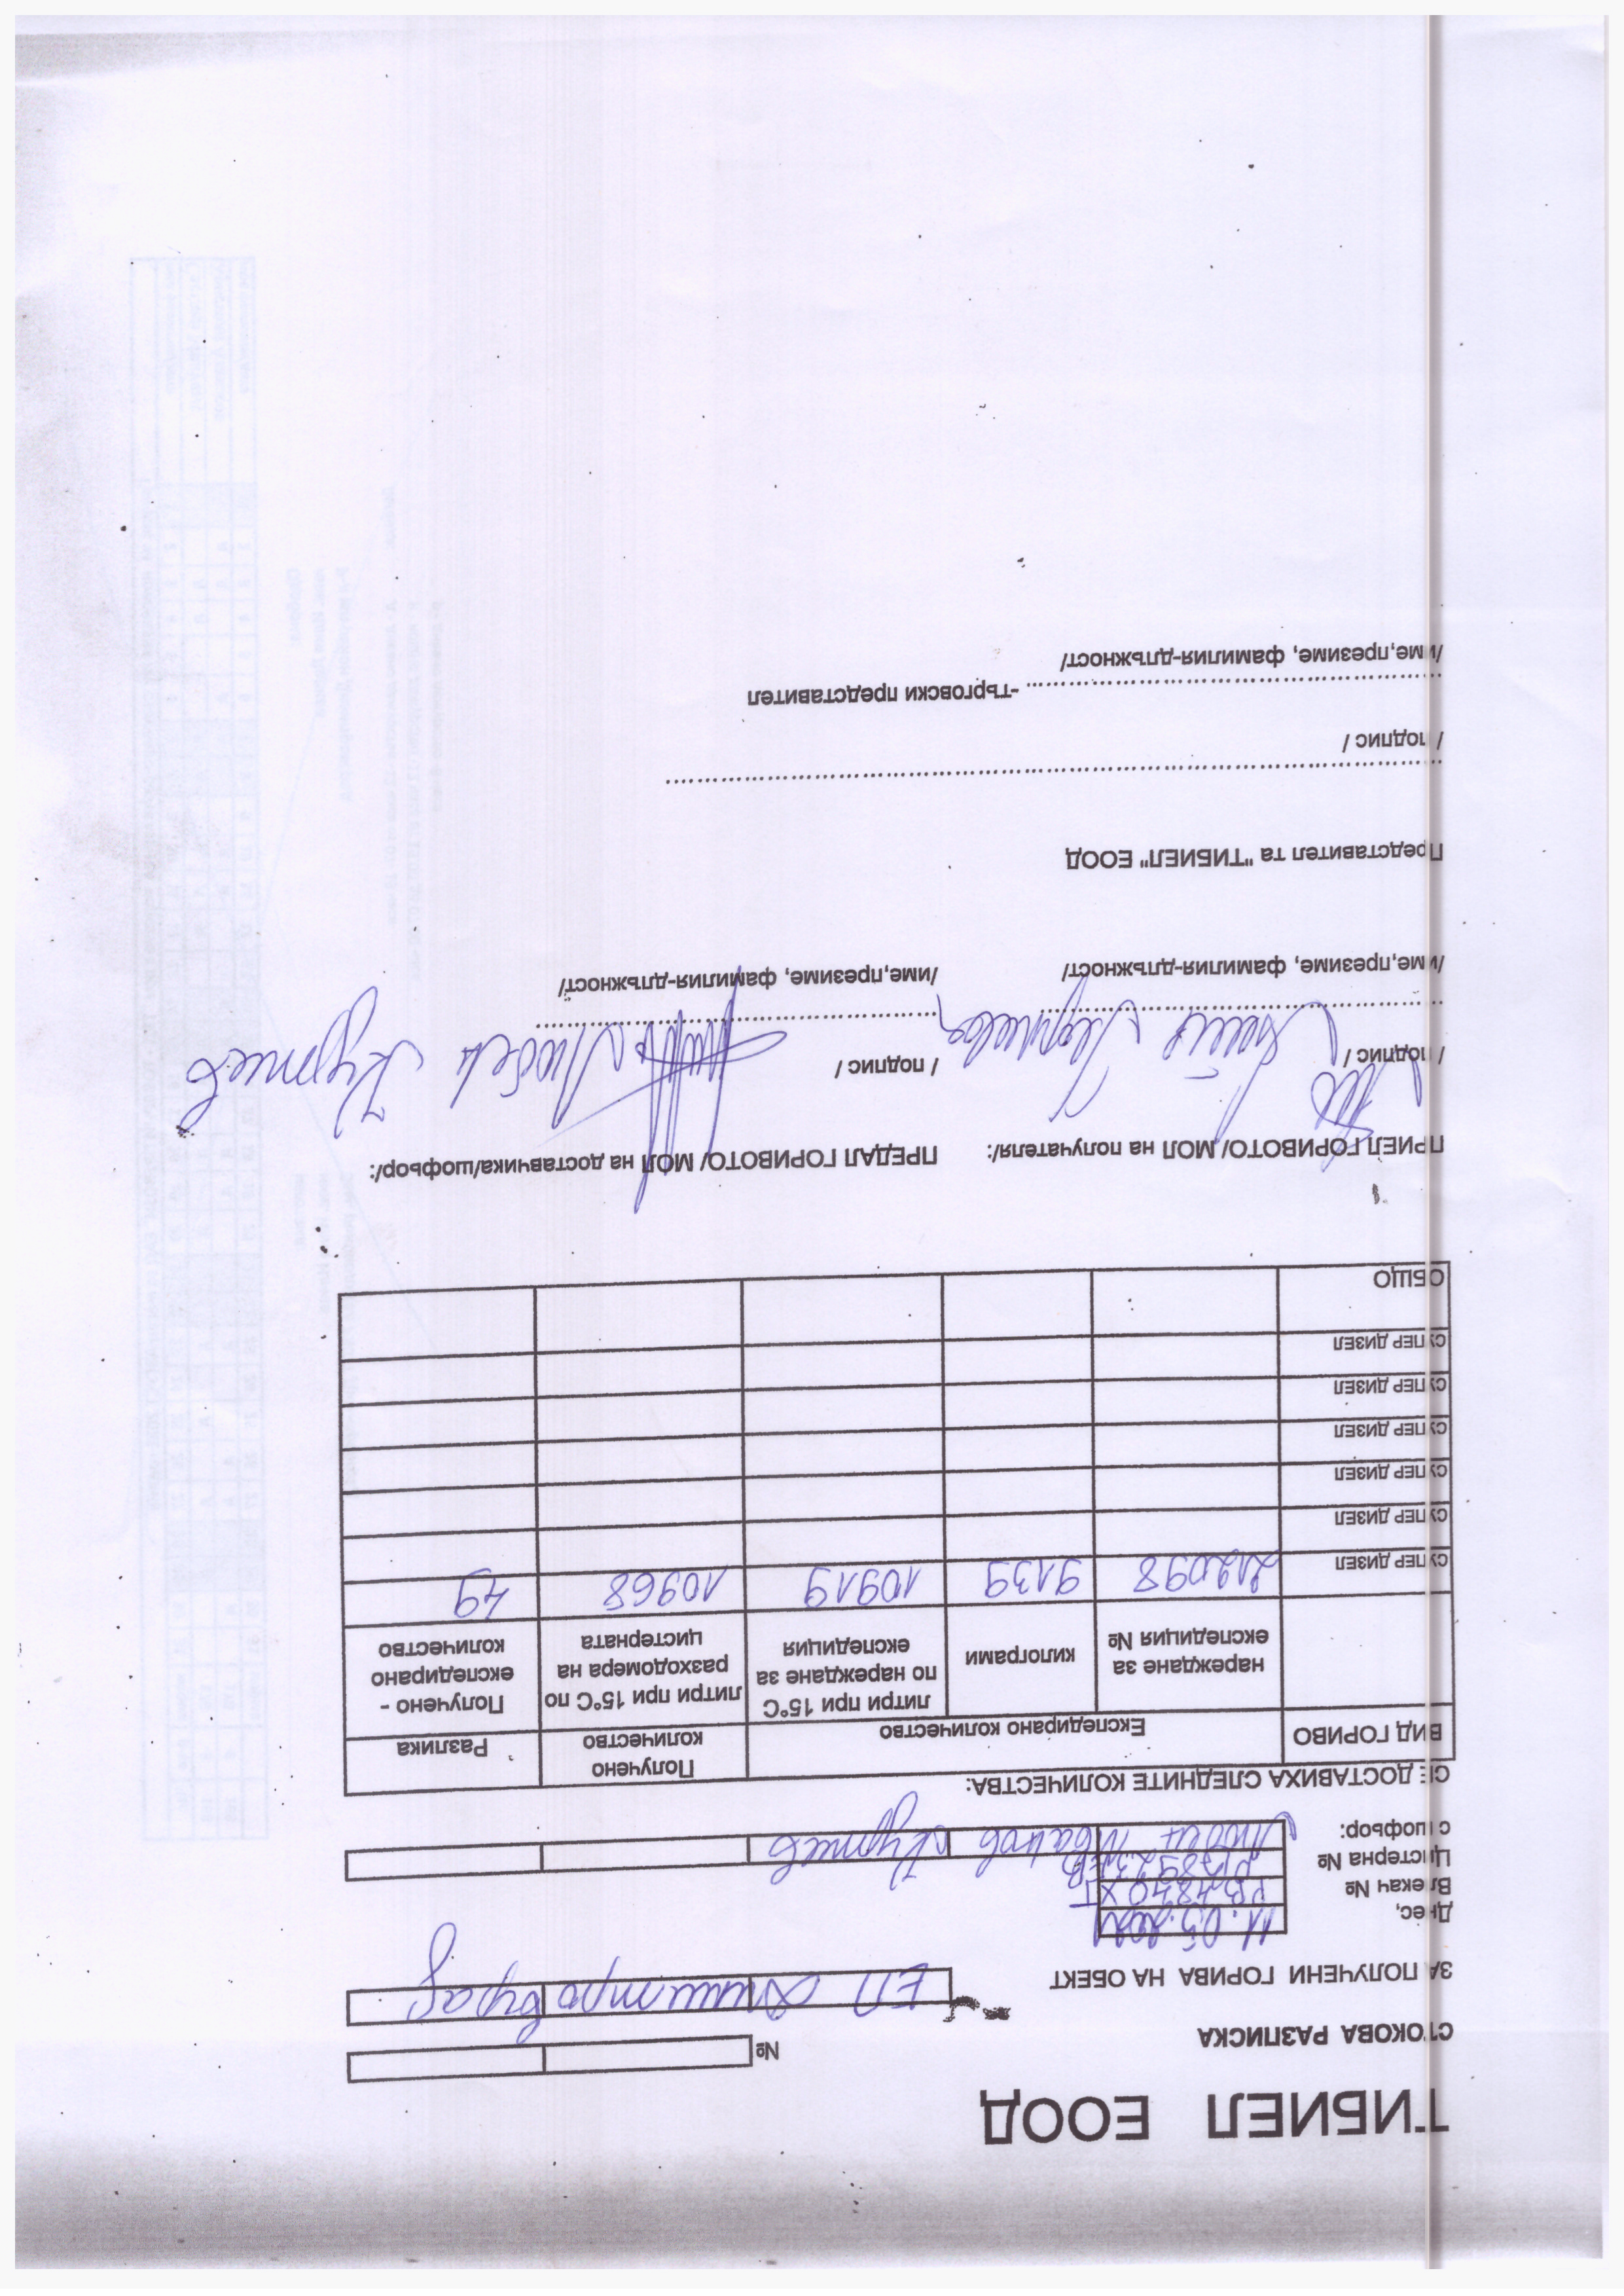 ТИБИЕЛ ЕООД
№
СТОКОВА РАЗПИСКА
ЗА ПОЛУЧЕНИ ГОРИВА НА ОБЕКТ ЕП Димитровград
Днес, 11.05.2021
Влекач № РВ4840ХТ
Цистерна №
шофьор: Любен Иванов Куртев
СЕ ДОСТАВИХА СЛЕДНИТЕ КОЛИЧЕСТВА:
ВИД ГОРИВО Експедирано количество Получено количество Разлика
нареждане за експедиция № килограми литри при 15°C по нареждане за експедиция литри при 15°C по разходомера на цистерната Получено - експедирано количество
СУПЕР ДИЗЕЛ 212098 9139 10919 10968 49
СУПЕР ДИЗЕЛ
СУПЕР ДИЗЕЛ
СУПЕР ДИЗЕЛ
СУПЕР ДИЗЕЛ
СУПЕР ДИЗЕЛ
ОБЩО
ПРИЕЛ ГОРИВОТО/ МОЛ на получателя/: ПРЕДАЛ ГОРИВОТО/ МОЛ на доставчика/шофьор/:
/ подпис / / подпис / Любен Куртев
/име,презиме, фамилия-длъжност/ /име,презиме, фамилия-длъжност/
Представител та "ТИБИЕЛ" ЕООД
/ подпис /
-търговски представител
/име,презиме, фамилия-длъжност/